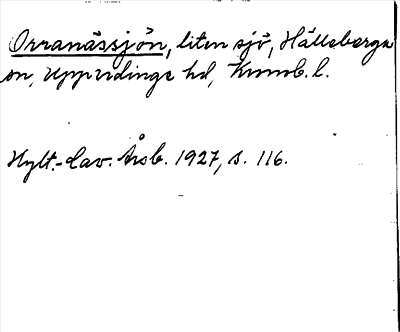 Orranässjön, liten sjö, Hälleberga
sn, Uppvidinge hd, Kronob. l.
Hylt.-Cav. Årsb. 1927, s. 116.